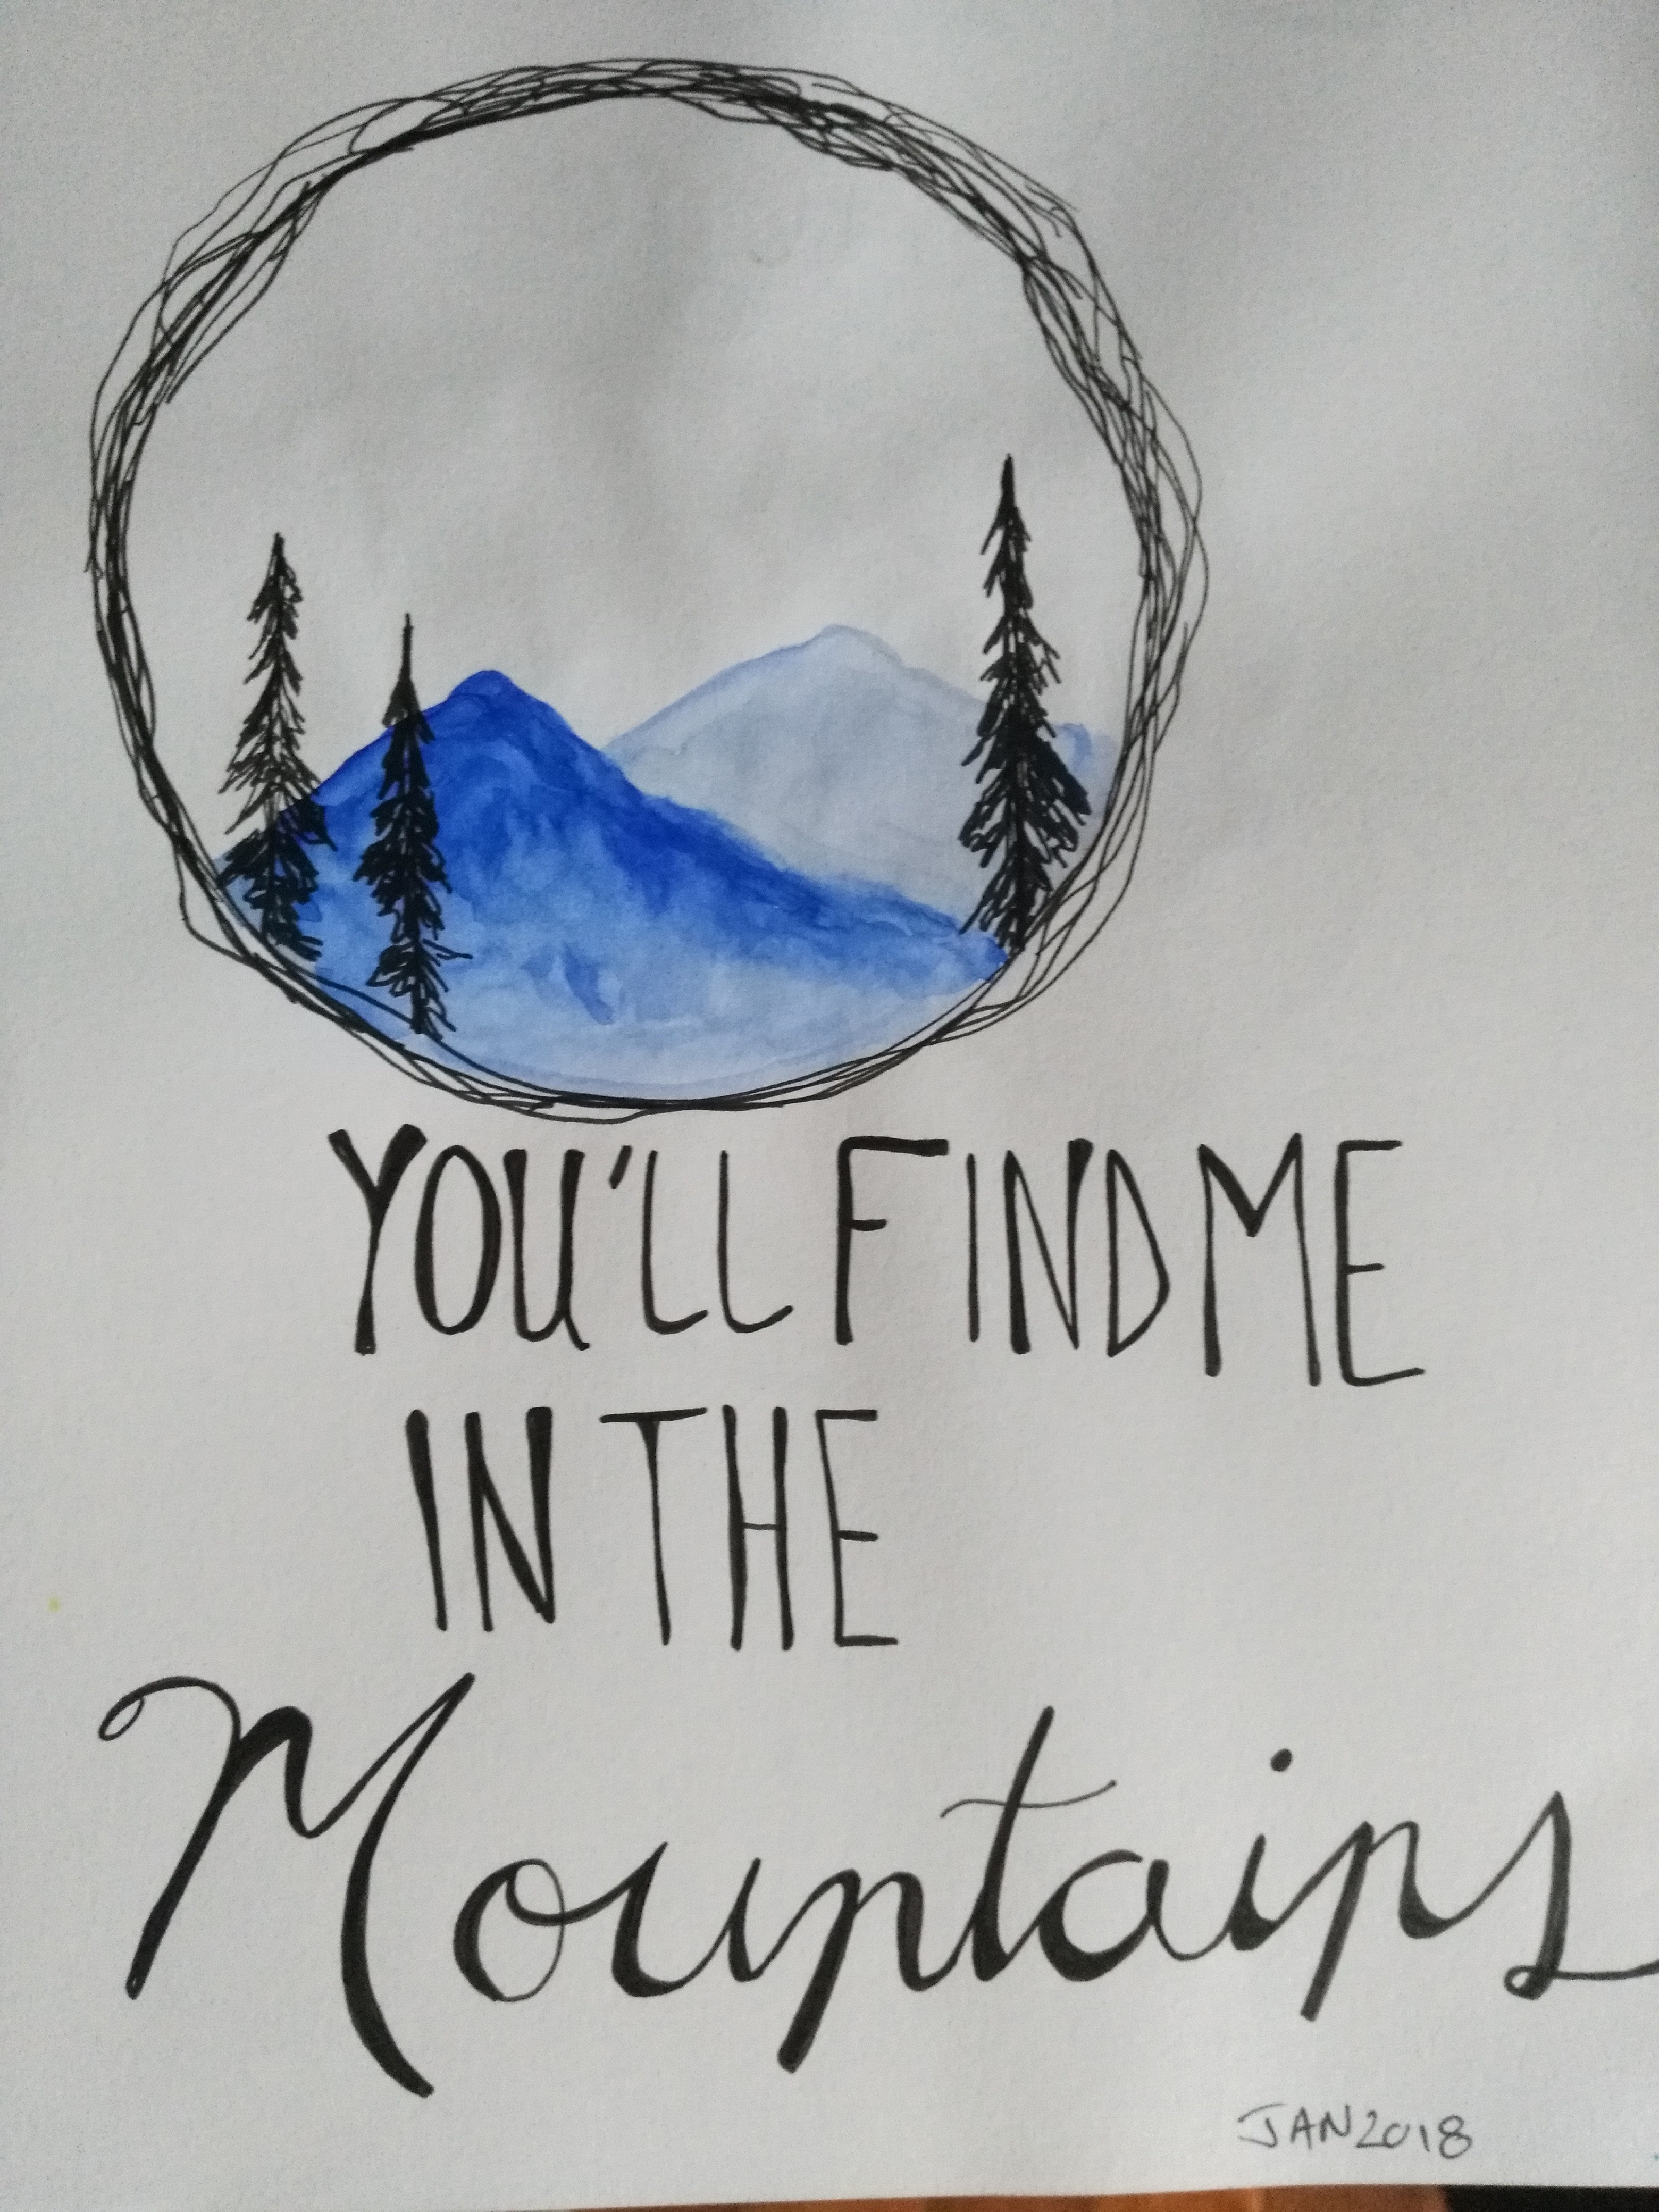 YOU'LL FIND ME
IN THE
Mountains
JAN 2018